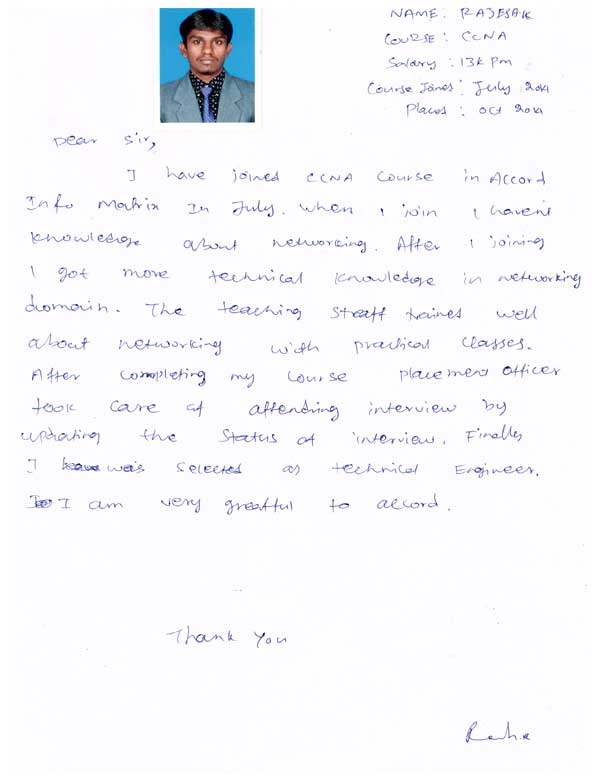 NAME : RAJESAK
COURSE : CCNA
Salary : 13k Pm
Course Joines : July 2014
Places : Oct 2014
Dear Sir,
I have joined CCNA Course in Accord
Info Matrix In July. When I join I haven't
knowledge about networking. After I joining
I got more technical knowledge in networking
domain. The teaching Staff traines well
about networking with practical classes.
After completing my course placement officer
took care of attending interview by
updating the status of interview. Finally
I was selected as technical Engineer.
I am very greatful to accord.
Thank You